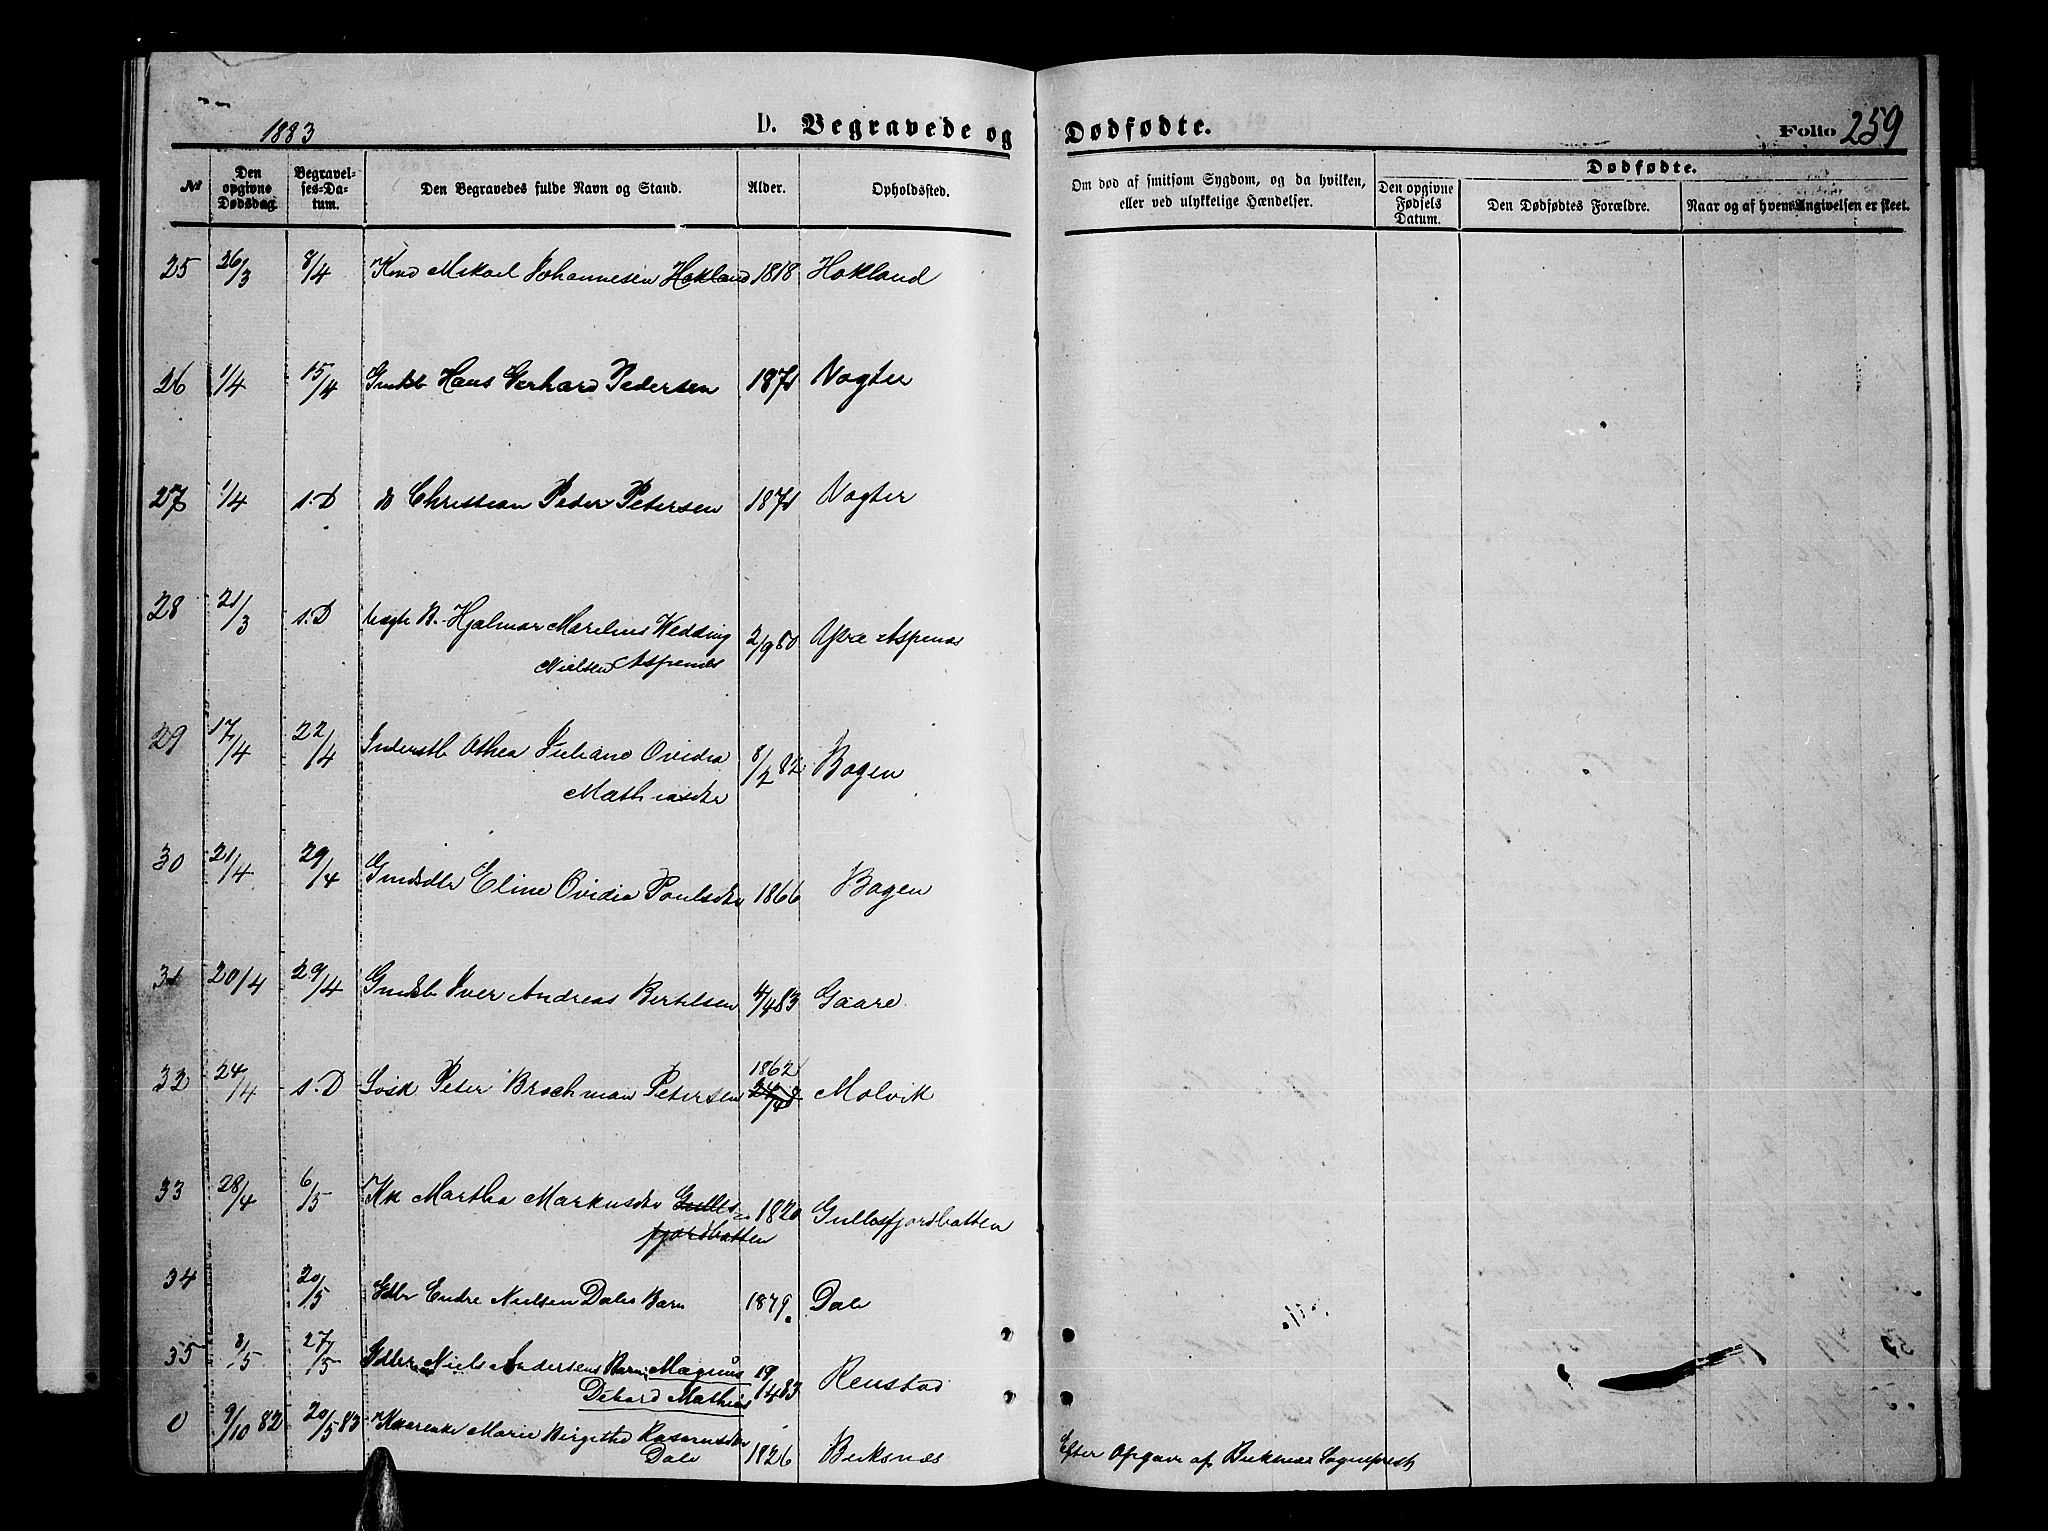 1883 D. Begravede og Dødfødte. Folio 259
№ Den opgivne Dødsdag. Begravelses-Datum. Den Begravedes fulde Navn og Stand. Alder. Opholdssted. Om død af smitsom Sygdom, og da hvilken, eller ved ulykkelige Hændelser. Dødfødte. Den opgivne Fødsels Datum. Den Dødfødtes Forældre. Naar og af hvem Angivelsen er skeet.
25 26/3 8/4 Johannesen Hokland 1818 Hokland
26 1/4 15/4 Hans Gerhard Pedersen 1871 Vogter
27 1/4 s.D Christian Peder Petersen 1871 Vogter
28 21/3 s.D B. Hjalmar Marelius Wedding 2/9 80 Aspenes
Nielsen Aspenes
29 17/4 22/4 Othea Juliane Ovidia 8/2 82 Bogen
Mathiasdtr
30 21/4 29/4 Eline Ovidia Poulsdtr 1866 Bogen
31 20/4 29/4 Iver Andreas Bertelsen 4/4 83 Gaare
1862
32 24/4 s.D Peter Brochman Petersen Molvik
33 28/4 6/5 Martha Markusdtr Gulles= 1820 Gullesfjordbotten
fjordbotten
34 20/5 Gdbr Endre Nielsen Dales Barn 1879. Dale
35 8/5 27/5 Gdbr Niels Andersens Barn Magnus 19/4 83 Renstad
Dehard Mathias
0 9/10 82 20/5 83 Marie Birgitha Rasmusdtr
Dale 1826 Buksnes Efter Opgave af Buksnes Sogneprest